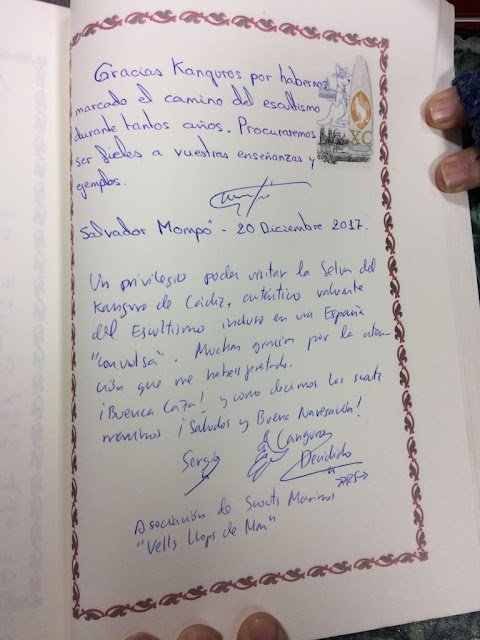 Gracias Kanguros por habernos
marcado el camino del escultismo
durante tantos años. Procuraremos
ser fieles a vuestras enseñanzas y
ejemplos.
XC
Salvador Mompó - 20 Diciembre 2017.
Un privilegio poder visitar la Selva del
Kanguro de Cádiz, auténtico
del Escultismo incluso en una España
"convulsa". Muchas gracias por la aten-
ción que me habeis prestado.
¡Buena Caza! y como decimos los scouts
marinos ¡Saludos y Buena Navegación!
Sergio
Canguro
Decidido
Asociación de Scouts Marinos
"Vells Llops de Mar"